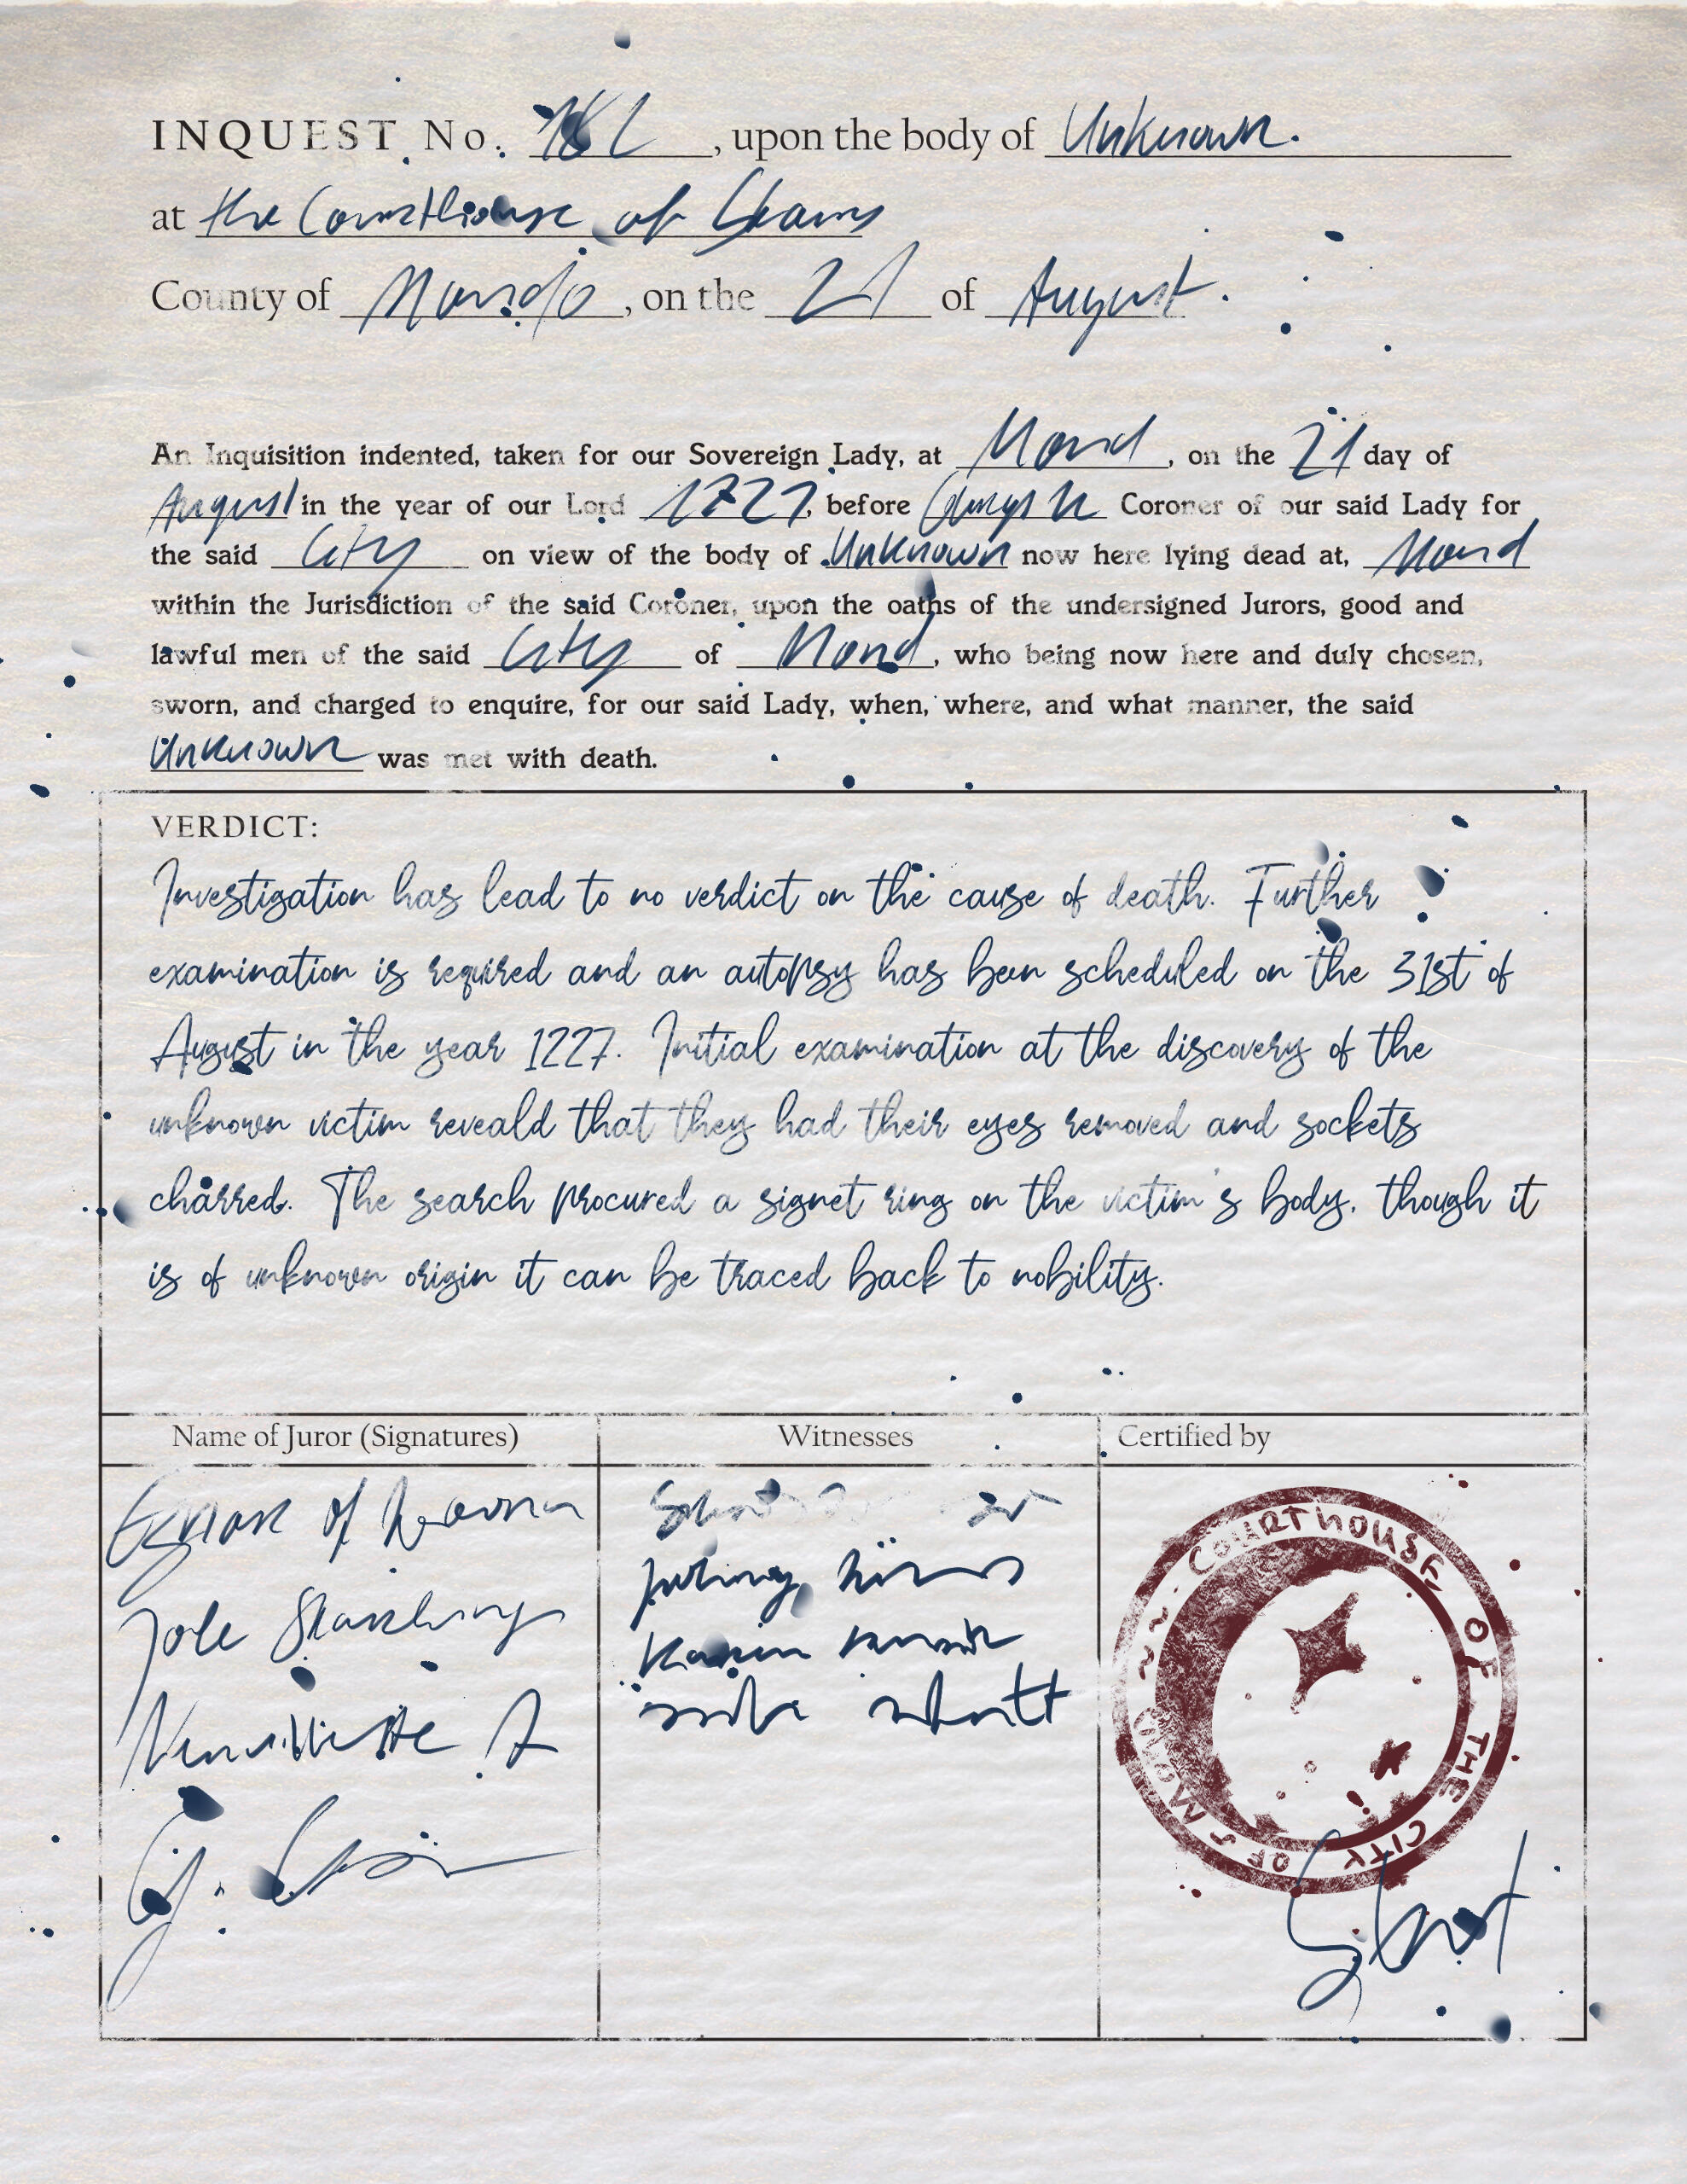 INQUEST No. , upon the body of Unknown.
at the Courthouse of
County of , on the 21 of August.
An Inquisition indented, taken for our Sovereign Lady, at Mond, on the 21 day of
August in the year of our Lord , before Coroner of our said Lady for
the said City on view of the body of Unknown now here lying dead at, Mond
within the Jurisdiction of the said Coroner, upon the oaths of the undersigned Jurors, good and
lawful men of the said City of Mond, who being now here and duly chosen,
sworn, and charged to enquire, for our said Lady, when, where, and what manner, the said
Unknown was met with death.
VERDICT:
Investigation has lead to no verdict on the cause of death. Further
examination is required and an autopsy has been scheduled on the 31st of
August in the year 1227. Initial examination at the discovery of the
unknown victim reveald that they had their eyes removed and sockets
charred. The search procured a signet ring on the victim's body, though it
is of unknown origin it can be traced back to nobility.
Name of Juror (Signatures)
Witnesses
Certified by
of
COURTHOUSE OF THE CITY OF MOND